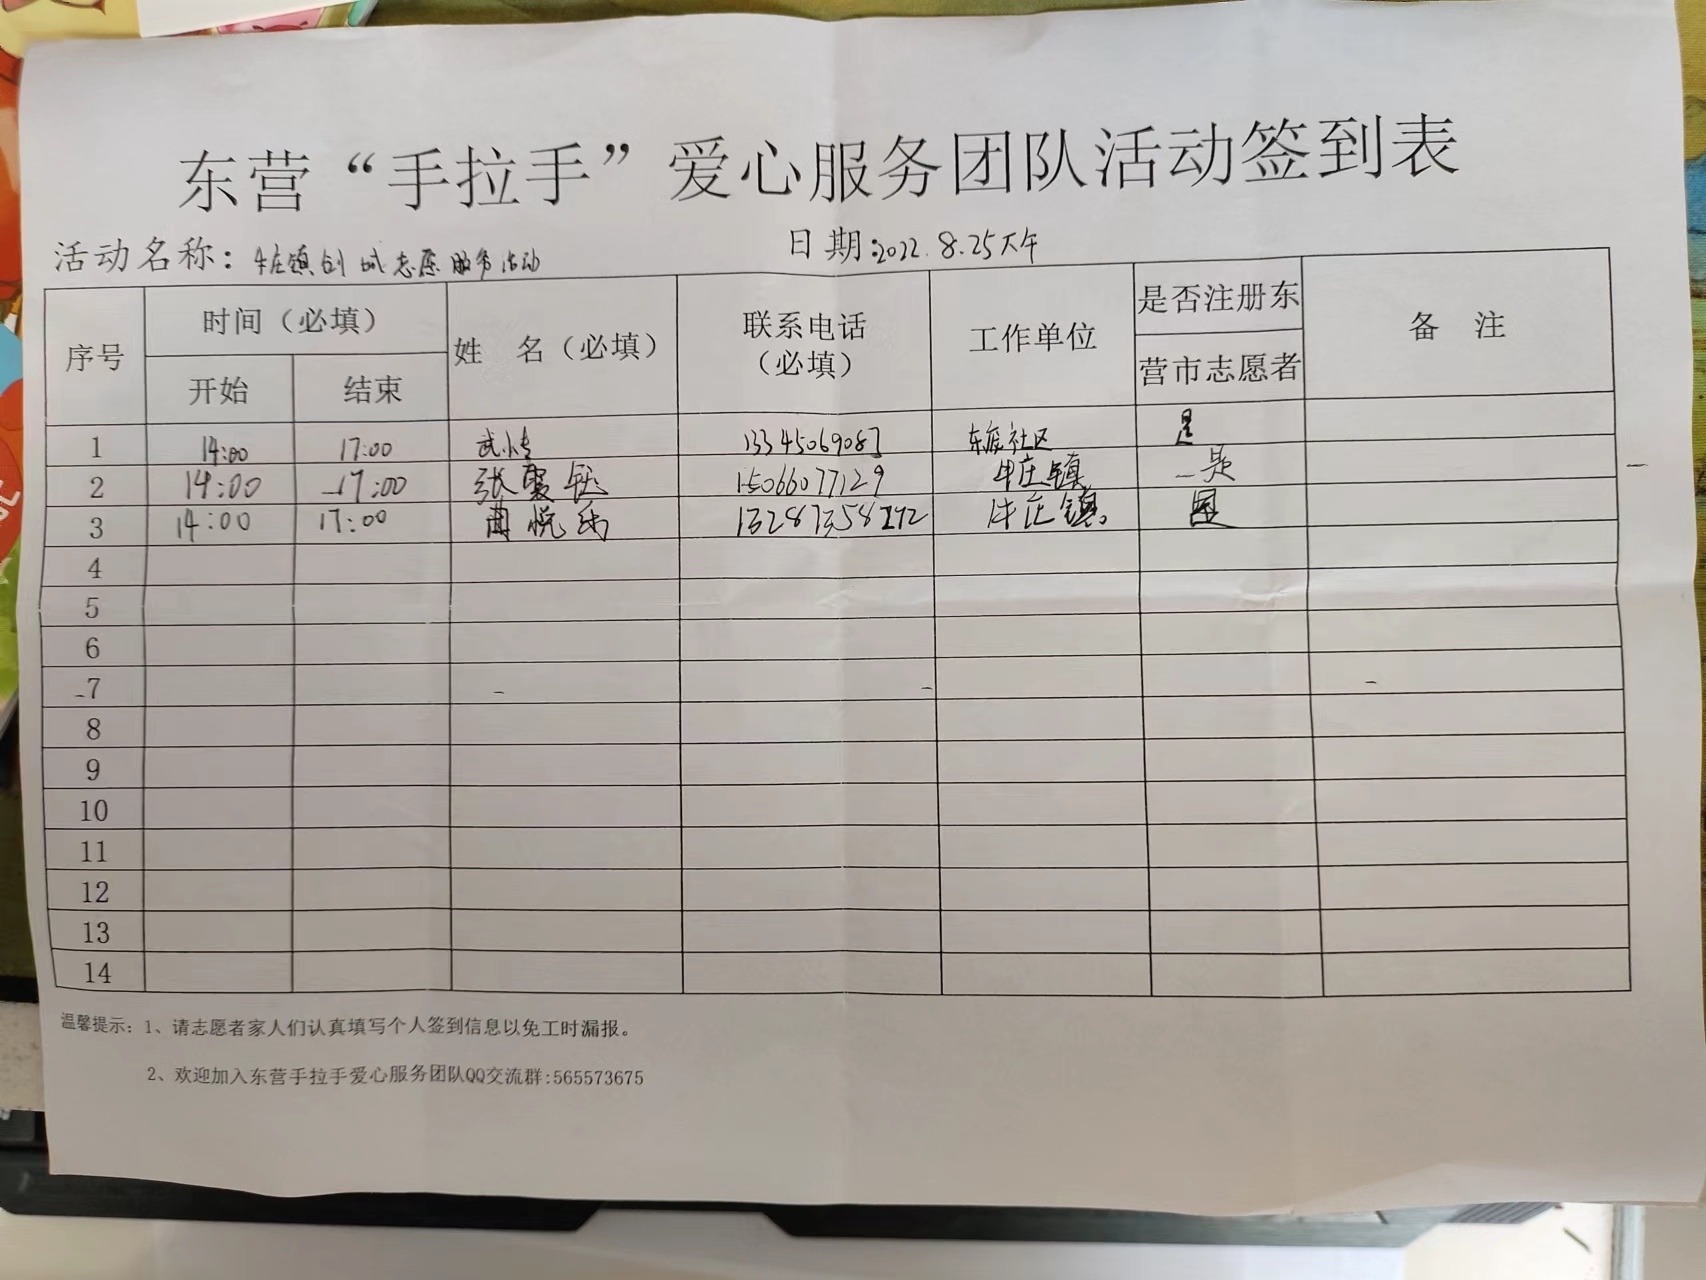 东营“手拉手”爱心服务团队活动签到表
活动名称：牛庄镇创城志愿服务活动 日期:2022.8.25下午
序号 时间（必填） 姓 名（必填） 联系电话（必填） 工作单位 是否注册东营市志愿者 备 注
开始 结束
1 14:00 17:00 武小 13345069087 社区 是
2 14:00 17:00 张 15066077129 牛庄镇 是
3 14:00 17:00 周悦 牛庄镇。
4
5
6
7
8
9
10
11
12
13
14
温馨提示：1、请志愿者家人们认真填写个人签到信息以免工时漏报。
2、欢迎加入东营手拉手爱心服务团队QQ交流群:565573675